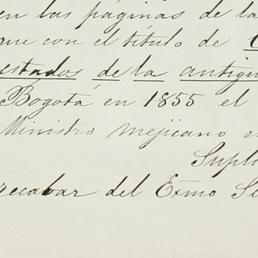 en las páginas de la
que con el titulo de
estados de la antigu
Bogotá en 1855 el
Ministro mejicano e
Suplic
recabar del Exmo Se